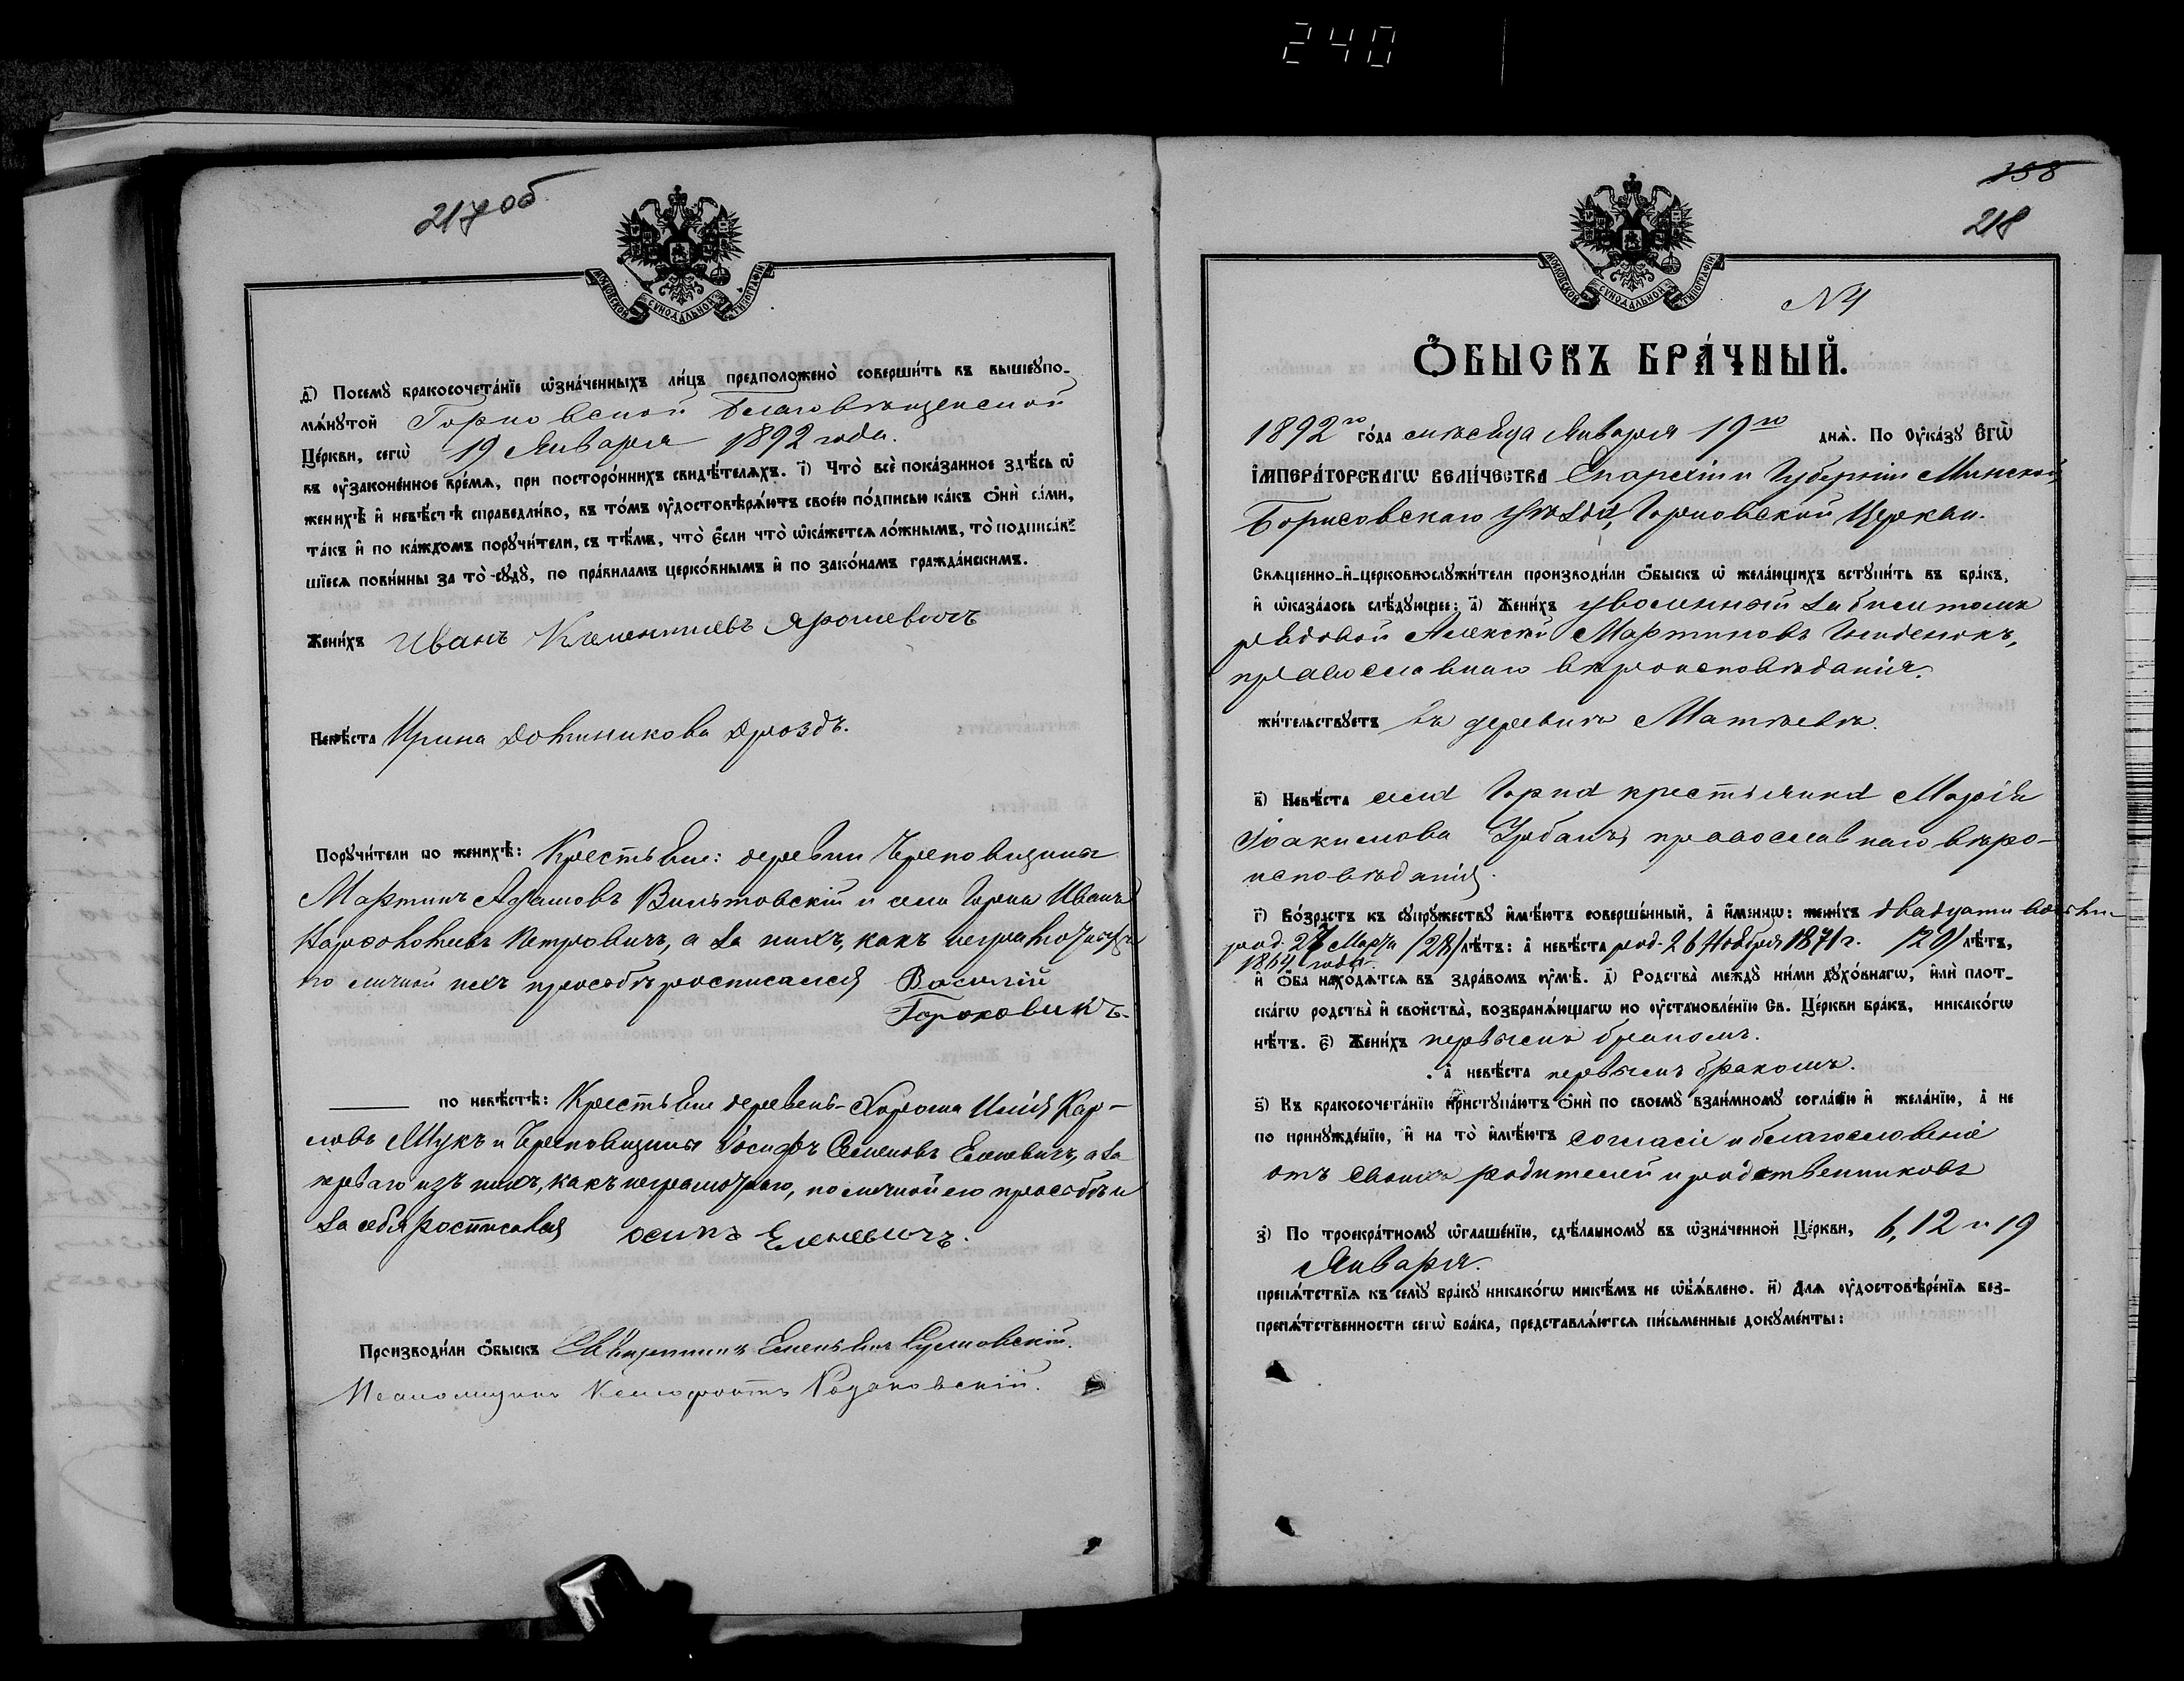 240
217 об
МОСКОВСКОЙ СѴНОДАЛЬНОЙ ТИПОГРАФІИ
д҃) Посемꙋ̀ бракосочета́нїе ѡ҆зна́ченныхъ ли́цъ предположено̀ соверши́ть въ вышеꙋпо-
мѧ́нꙋтой Горновской Благовѣщенской
Це́ркви, сегѡ̀ 19 Января 1892 года.
въ ᲂу҆зако́ненное вре́мѧ, при посторо́ннихъ свидѣ́телѧхъ. і҃) Что̀ всѐ пока́занное здѣ́сь ѡ҆
женихѣ̀ и҆ невѣ́стѣ справедли́во, въ то́мъ ᲂу҆достовѣрѧ́ютъ свое́ю по́дписью ка́къ ѻ҆нѝ са́ми,
та́къ и҆ по ка́ждомъ порꙋчи́тели, съ тѣ́мъ, что̀ є҆́сли что̀ ѡ҆ка́жется ло́жнымъ, то̀ подписа́в-
шїесѧ пови́нны за то̀ сꙋдꙋ̀, по пра́виламъ церко́внымъ и҆ по зако́намъ гражда́нскимъ.
Жени́хъ Иванъ Климентиевъ Ярошевичъ
Невѣ́ста Ирина Логинникова Дроздъ.
Порꙋчи́тели по женихѣ̀: Крестьяне: деревни Черновщины
Мартинъ Адамовъ Вильтовскій и села Горна Иванъ
Петровичъ, а за нихъ, какъ неграмотныхъ
по личной ихъ просьбѣ росписался Василій
Гороховикъ.
по невѣ́стѣ: Крестьяне деревень
Жукъ и Черновщины Іосифъ Семеновъ Еленевичъ, а за
перваго изъ нихъ, какъ неграмотнаго, по личной его просьбѣ и
за себя росписался осипъ Еленевичъ.
Производи́ли ѻ҆́быскъ Священникъ
Псаломщикъ
158
218
МОСКОВСКОЙ СѴНОДАЛЬНОЙ ТИПОГРАФІИ
N 4
Ѻ҆́БЫСКЪ БРА́ЧНЫЙ.
1892 го го́да мѣсяца Января 19 го днѧ̀. По ᲂу҆ка́зꙋ Є҆ГѠ̀
І҆МПЕРА́ТОРСКАГѠ ВЕЛИ́ЧЕСТВА Епархіи и Губерніи Минской,
Борисовскаго уѣзда, Горновской Церкви.
Свѧще́нно-и҆-церковнослꙋжи́тели производи́ли ѻ҆́быскъ ѡ҆ жела́ющихъ встꙋпи́ть въ бра́къ,
и҆ ѡ҆каза́лось слѣ́дꙋющее: а҃) Жени́хъ уволенный за билетомъ
рядовой Алексѣй Мартиновъ Игнатенокъ,
православнаго вѣроисповѣданія.
жи́тельствꙋетъ въ деревнѣ Матѣевкѣ.
в҃) Невѣ́ста села Горна крестьянка Марія
Іоакимова Урбанъ, православнаго вѣро-
исповѣданія.
г҃) Во́зрастъ къ сꙋпрꙋ́жествꙋ и҆мѣ́ютъ соверше́нный, а҆ и҆́меннѡ: жени́хъ двадцати восьми
род. 27 Марта /28/ лѣ́тъ: а҆ невѣ́ста род. 26 Ноября 1871 г. /20/ лѣ́тъ,
1864 года
и҆ ѻ҆́ба нахо́дѧтсѧ въ здра́вомъ ᲂу҆мѣ̀. д҃) Родства̀ междꙋ̀ ни́ми дꙋхо́внагѡ, и҆лѝ плот-
ска́гѡ родства̀ и҆ сво́йства̀, возбранѧ́ющагѡ по ᲂу҆становле́нїю Св. Це́ркви бра́къ, никако́гѡ
нѣ́тъ. є҃) Жени́хъ первымъ бракомъ.
а҆ невѣ́ста первымъ бракомъ.
ѕ҃) Къ бракосочета́нїю пристꙋпа́ютъ ѻ҆нѝ по своемꙋ̀ взаи́мномꙋ согла́сїю и҆ жела́нїю, а҆ не
по принꙋжде́нїю, и҆ на то̀ и҆мѣ́ютъ согласіе и благословеніе
отъ своихъ родителей и родственниковъ
з҃) По троекра́тномꙋ ѡ҆глаше́нїю, сдѣ́ланномꙋ въ ѡ҆зна́ченной Це́ркви, 6, 12 и 19
Января.
препѧ́тствїѧ къ семꙋ̀ бра́кꙋ никако́гѡ никѣ́мъ не ѡ҆бъѧ́влено. и҃) Длѧ ᲂу҆достовѣре́нїѧ без-
препѧ́тственности сегѡ̀ бра́ка, представлѧ́ютсѧ пи́сьменные докꙋме́нты: